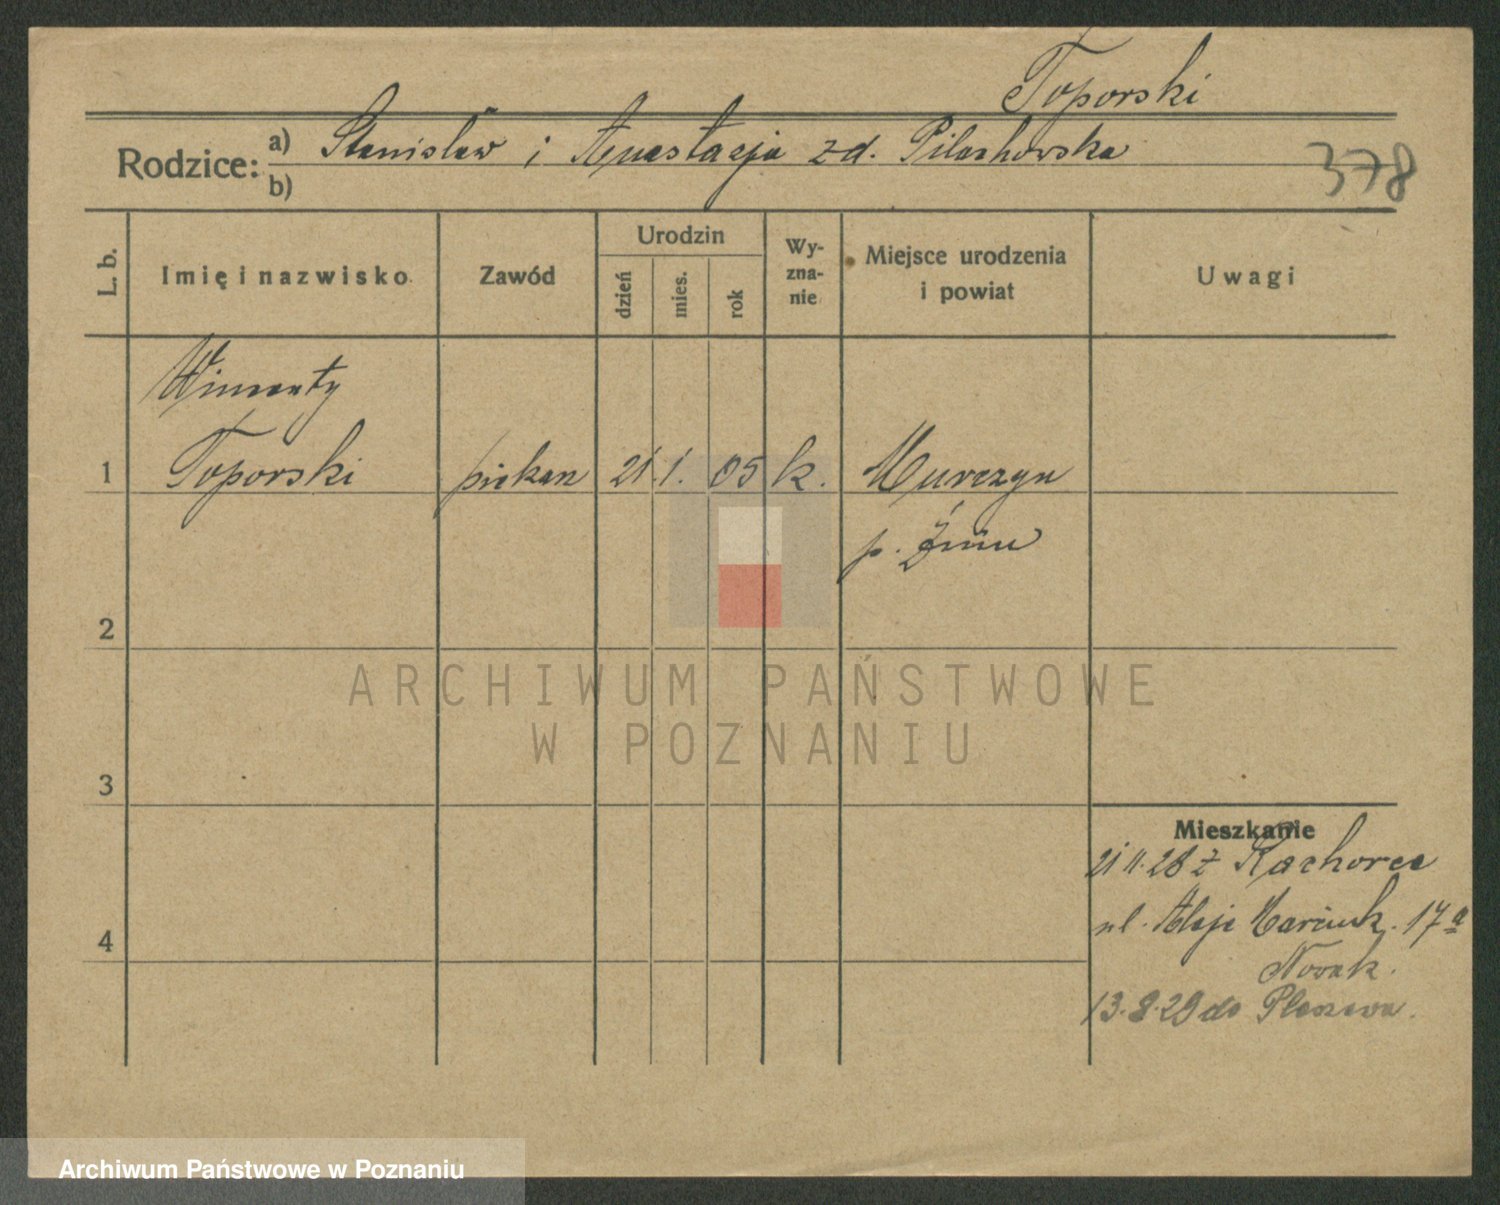 Toporski
Rodzice: a) Stanisław i Anastazja zd. Pilachowska
b)
378
L. b.
Imię i nazwisko
Zawód
Urodzin
dzień
mies.
rok
Wy-
zna-
nie
Miejsce urodzenia
i powiat
Uwagi
Wincenty
1 Toporski piekarz 21. 1. 05 k. Murczyn
p. Żnin
2
3
4
Mieszkanie
21 11. 28 z
ul. Aleje Marcink. 17a
Nowak.
13. 8. 29 do Pleszewa.
ARCHIWUM PAŃSTWOWE
W POZNANIU
Archiwum Państwowe w Poznaniu